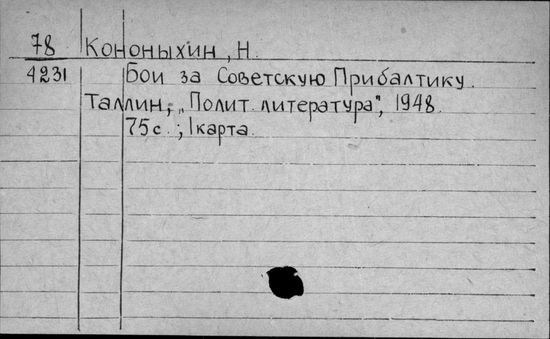 78 Кононыхин, Н.
4231 Бои за Советскую Прибалтику.
Таллин, „Полит. литература", 1948.
75с.; 1 карта.